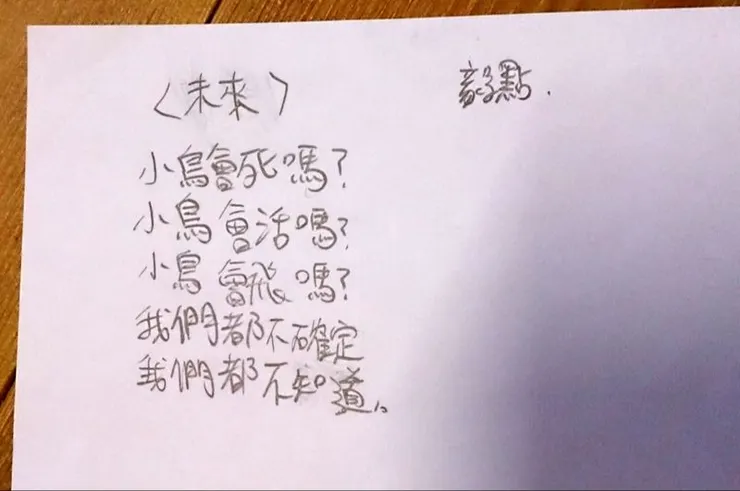 〈未來〉
小鳥會死嗎？
小鳥會活嗎？
小鳥會飛嗎？
我們都不確定
我們都不知道。